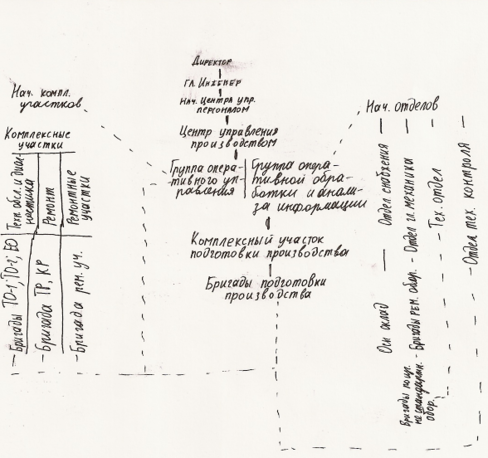 Директор
Гл. Инженер
Нач. Центра упр.
персоналом
Центр управления
производством
Группа опера-
тивного уп-
равления
Группа опера-
тивной обра-
ботки и анали-
за информации
Комплексный участок
подготовки производства
Бригады подготовки
производства
Нач. компл.
участков
Комплексные
участки
Техн. обсл. и диаг-
ностика
Ремонт
Ремонтные
участки
Бригады ТО-1, ТО-2, ЕО
Бригада ТР, КР
Бригада рем. уч.
Нач. отделов
Отдел снабжения
Осн склад
Отдел гл. механика
Бригады рем. обор.
Бригады по
нестандартн.
обор.
Тех. отдел
Отдел тех. контроля